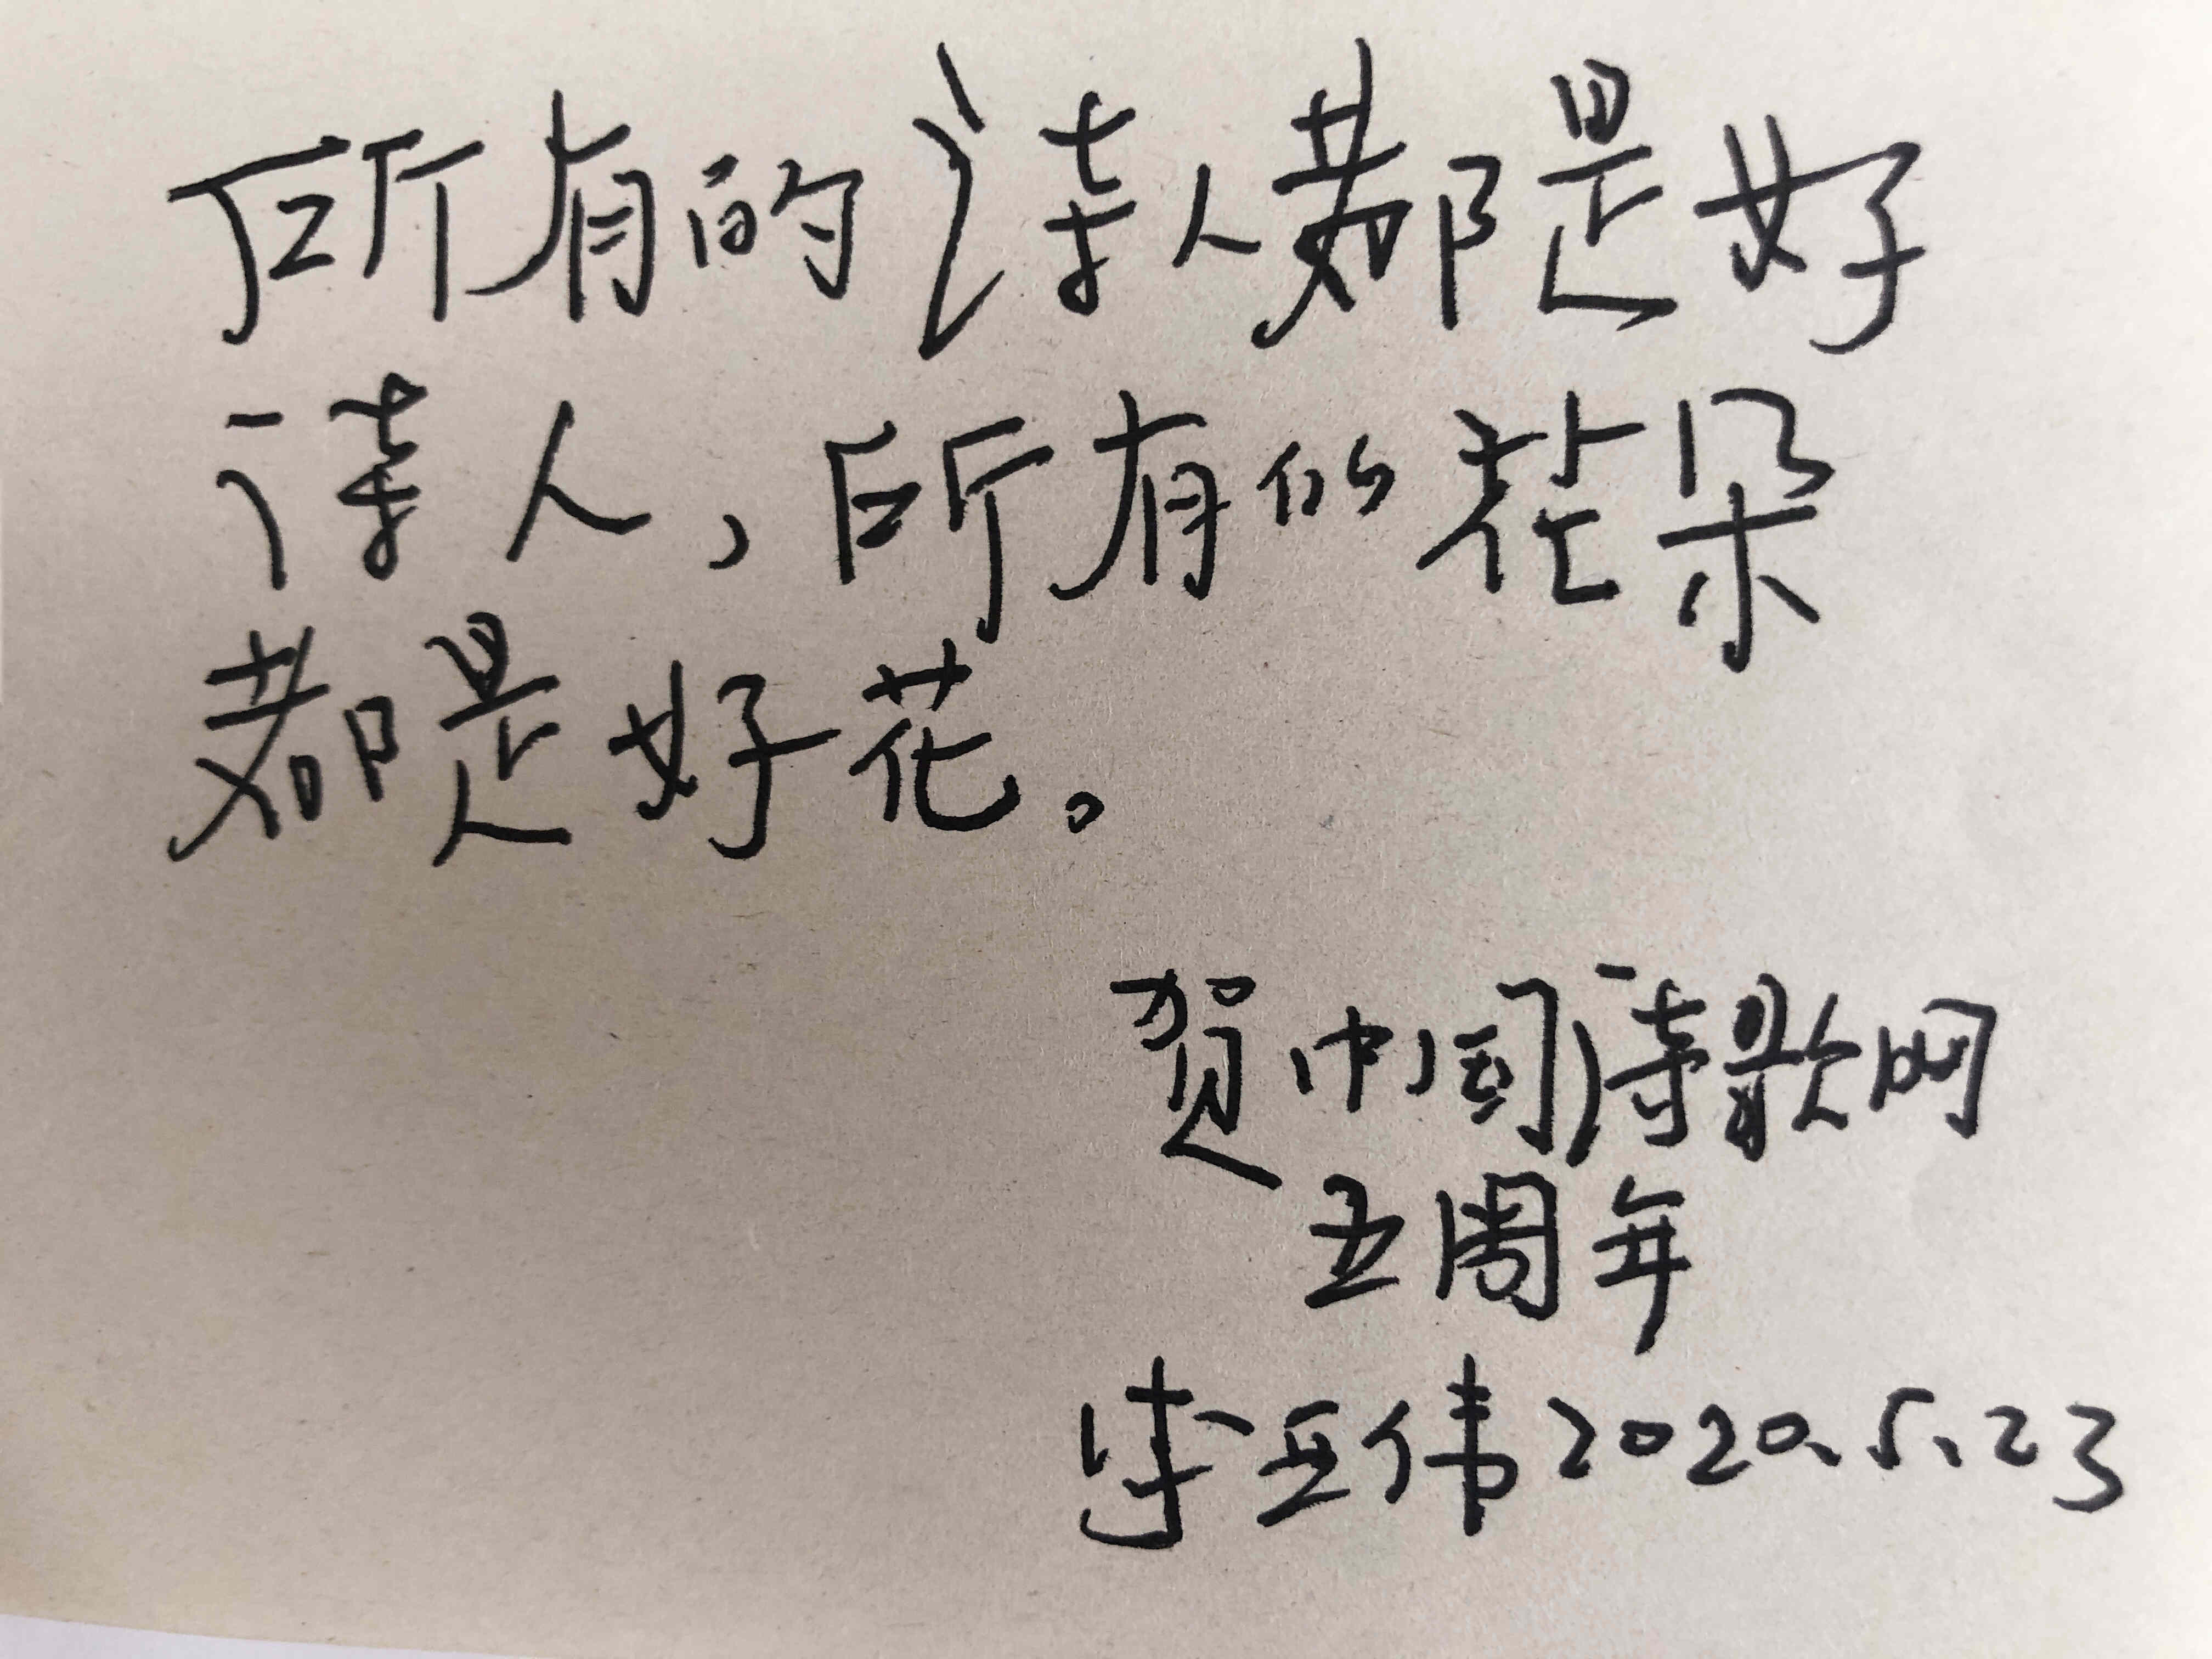 所有的诗人都是好
诗人，所有的花朵
都是好花。
贺中国诗歌网
五周年
李亚伟2020.5.23